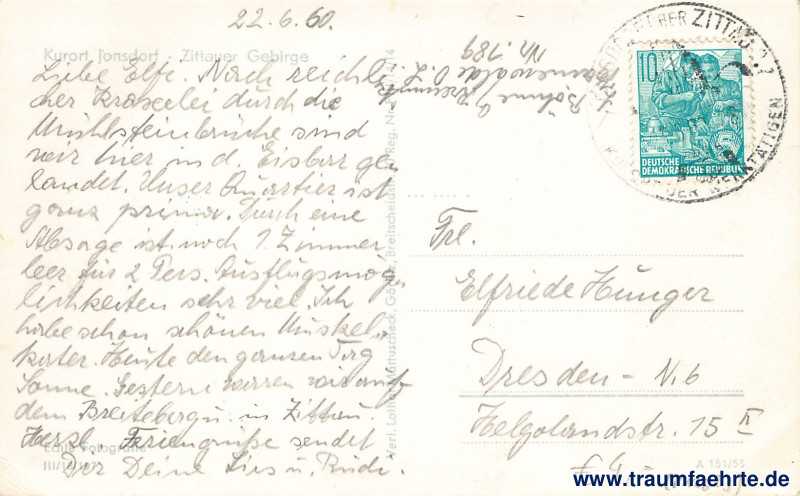 22.6.60.
Kurort Jonsdorf - Zittauer Gebirge
Liebe Elfr. Nach reichli-
cher Kraxelei durch die
Mühlsteinbrüche sind
wir hier in d. Eisbar ge-
landet. Unser Quartier ist
ganz prima. Durch eine
Absage ist noch 1 Zimmer
leer für 2 Pers. Ausflugsmög-
lichkeiten sehr viel. Ich
habe schon schönen Muskel-
kater. Heute den ganzen Tag
Sonne. Gestern waren wir auf
dem Breiteberg u. in Zittau.
Herzl. Feriengrüße sendet
Dir Deine Lies u. Rudi.
Echte Fotografie
III/14/187
Böhme
Nr. 189
Verl. Lothar Mattuscheck, Görlitz, Breitscheidstr. Reg. Nr.
ÜBER ZITTAU
KURORT DER WERKTÄTIGEN
10
DEUTSCHE
DEMOKRATISCHE REPUBLIK
Frl.
Elfriede Hunger
Dresden - N. 6
Helgolandstr. 15 II
A 151/55
www.traumfaehrte.de